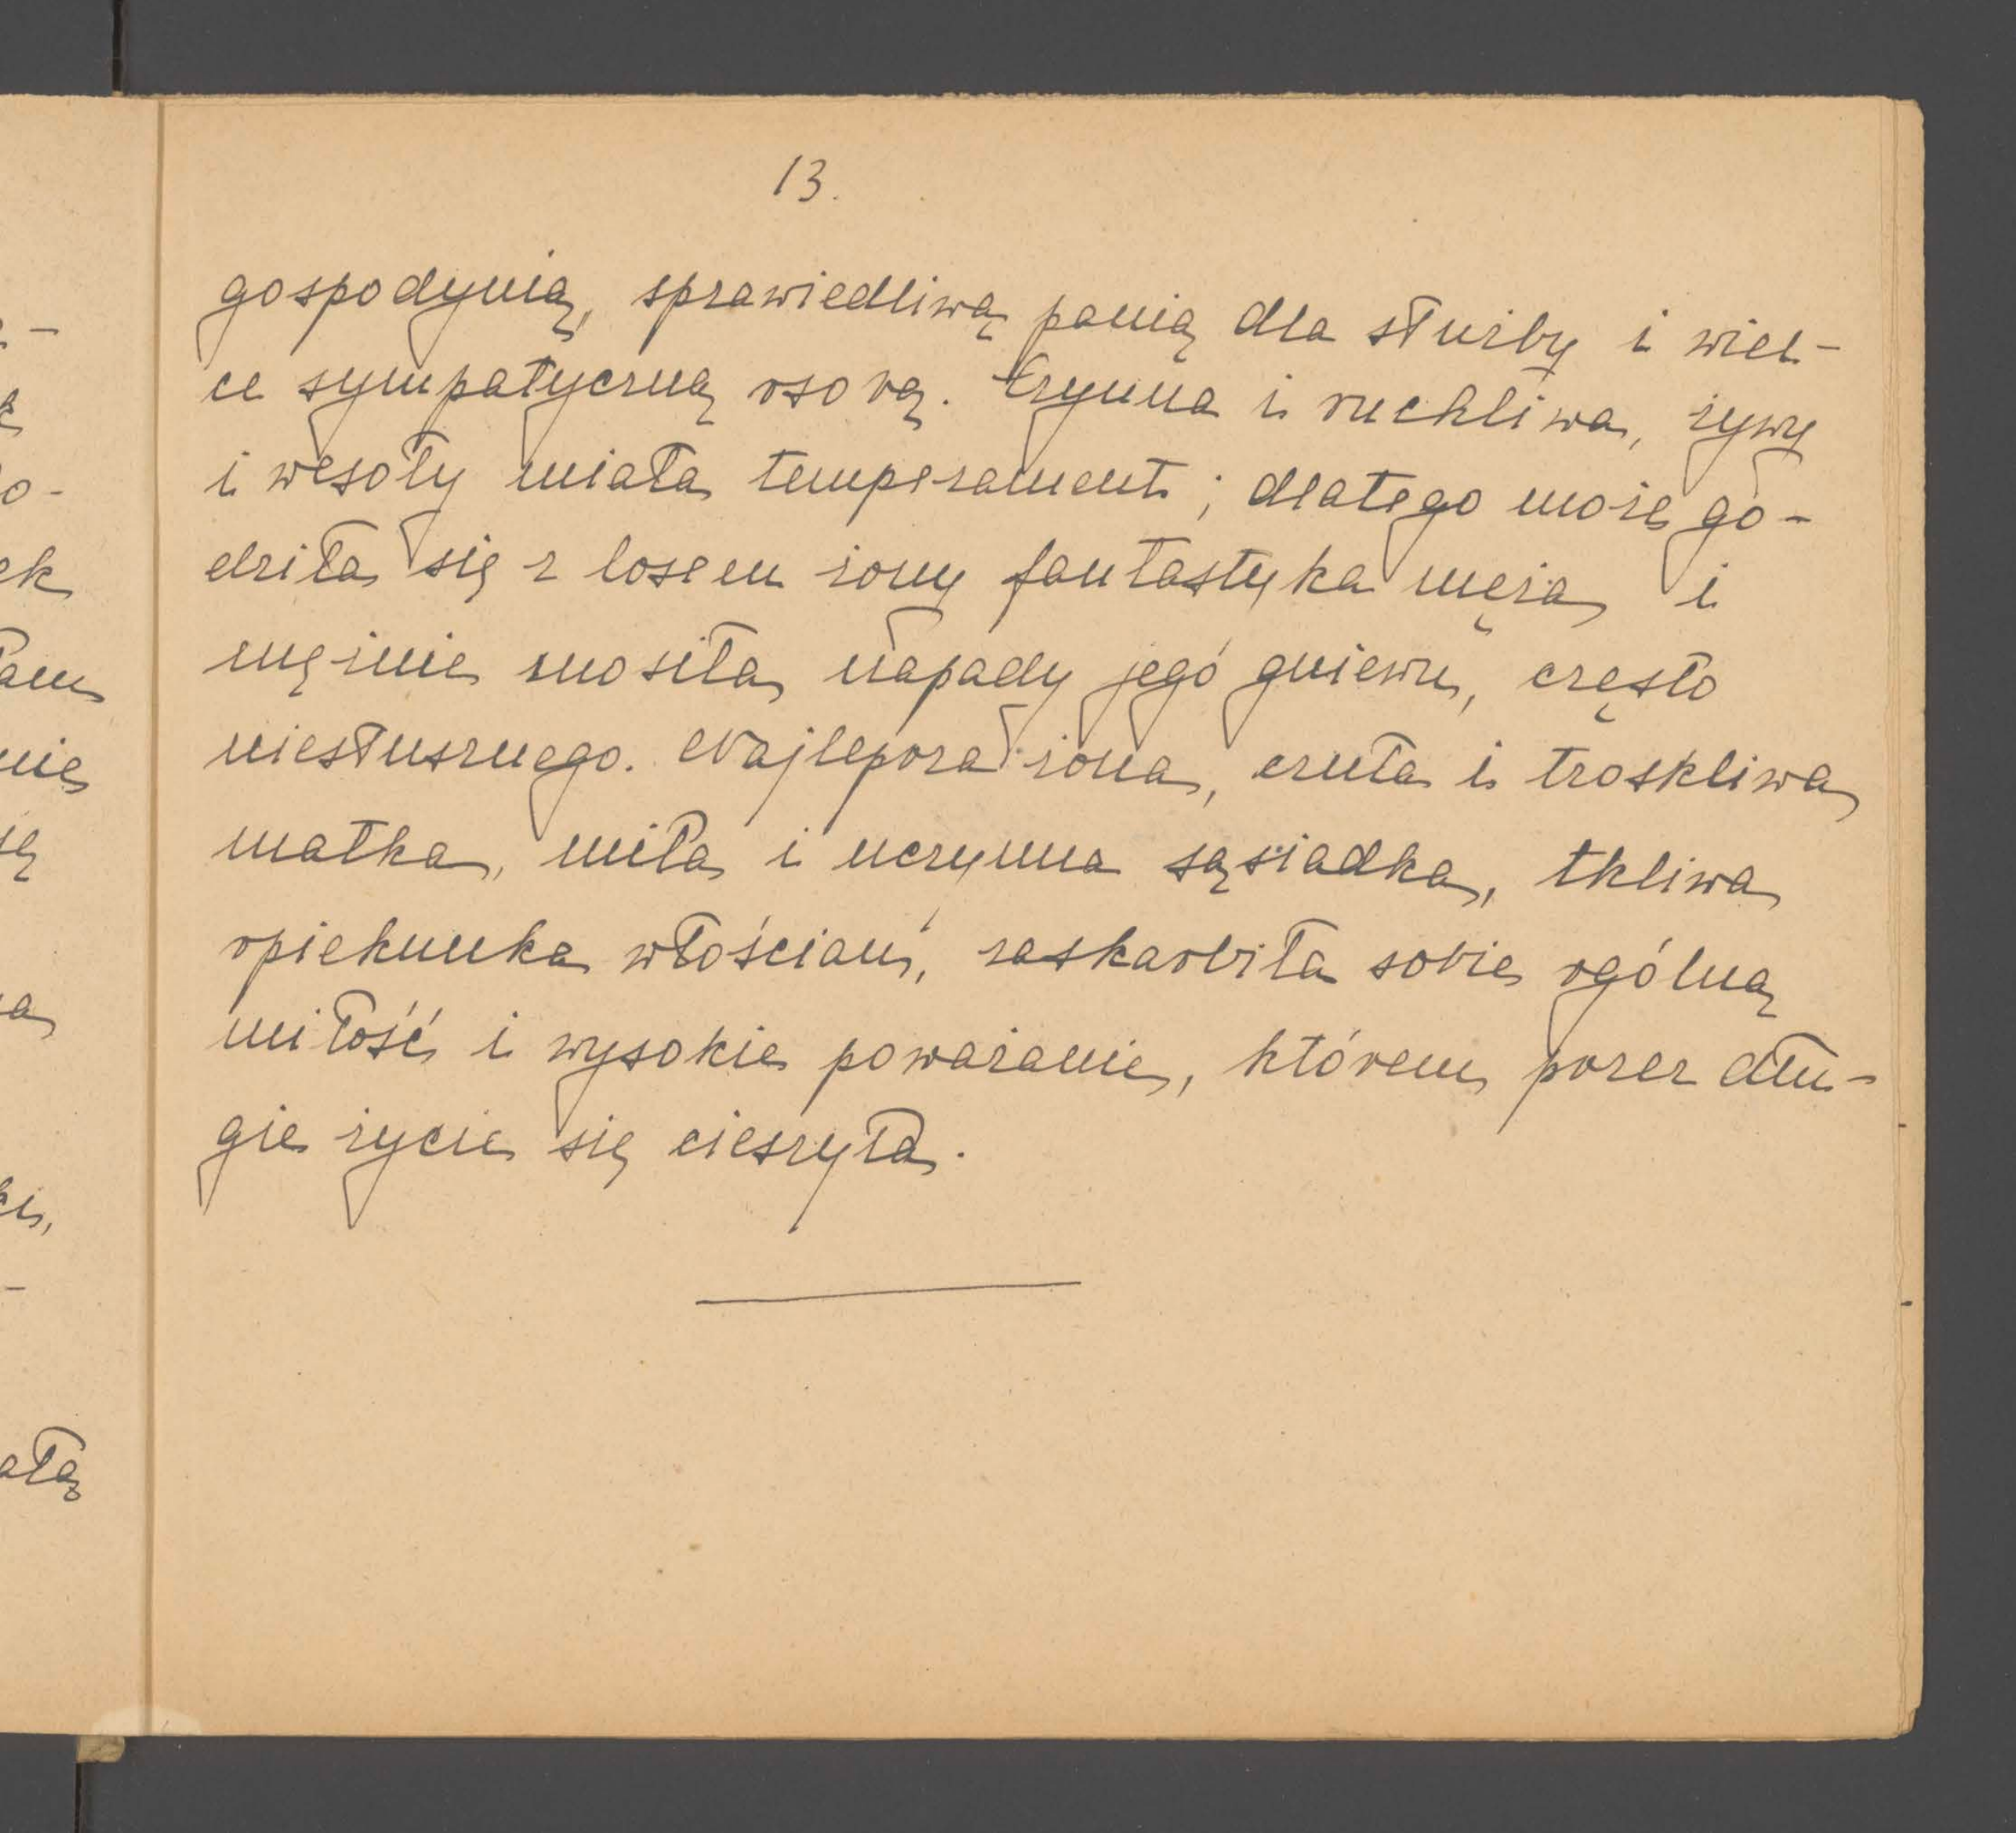 13.
gospodynią, sprawiedliwą panią dla służby i wiel-
ce sympatyczną osobą. Czynna i ruchliwa, żywy
i wesoły miała temperament; dlatego może go-
dziła się z losem żony fantastyka męża i
mężnie znosiła napady jego gniewu, często
niesłusznego. Najlepsza żona, czuła i troskliwa
matka, miła i uczynna sąsiadka, tkliwa
opiekunka włościan, zaskarbiła sobie ogólną
miłość i wysokie poważanie, którem przez dłu-
gie życie się cieszyła.